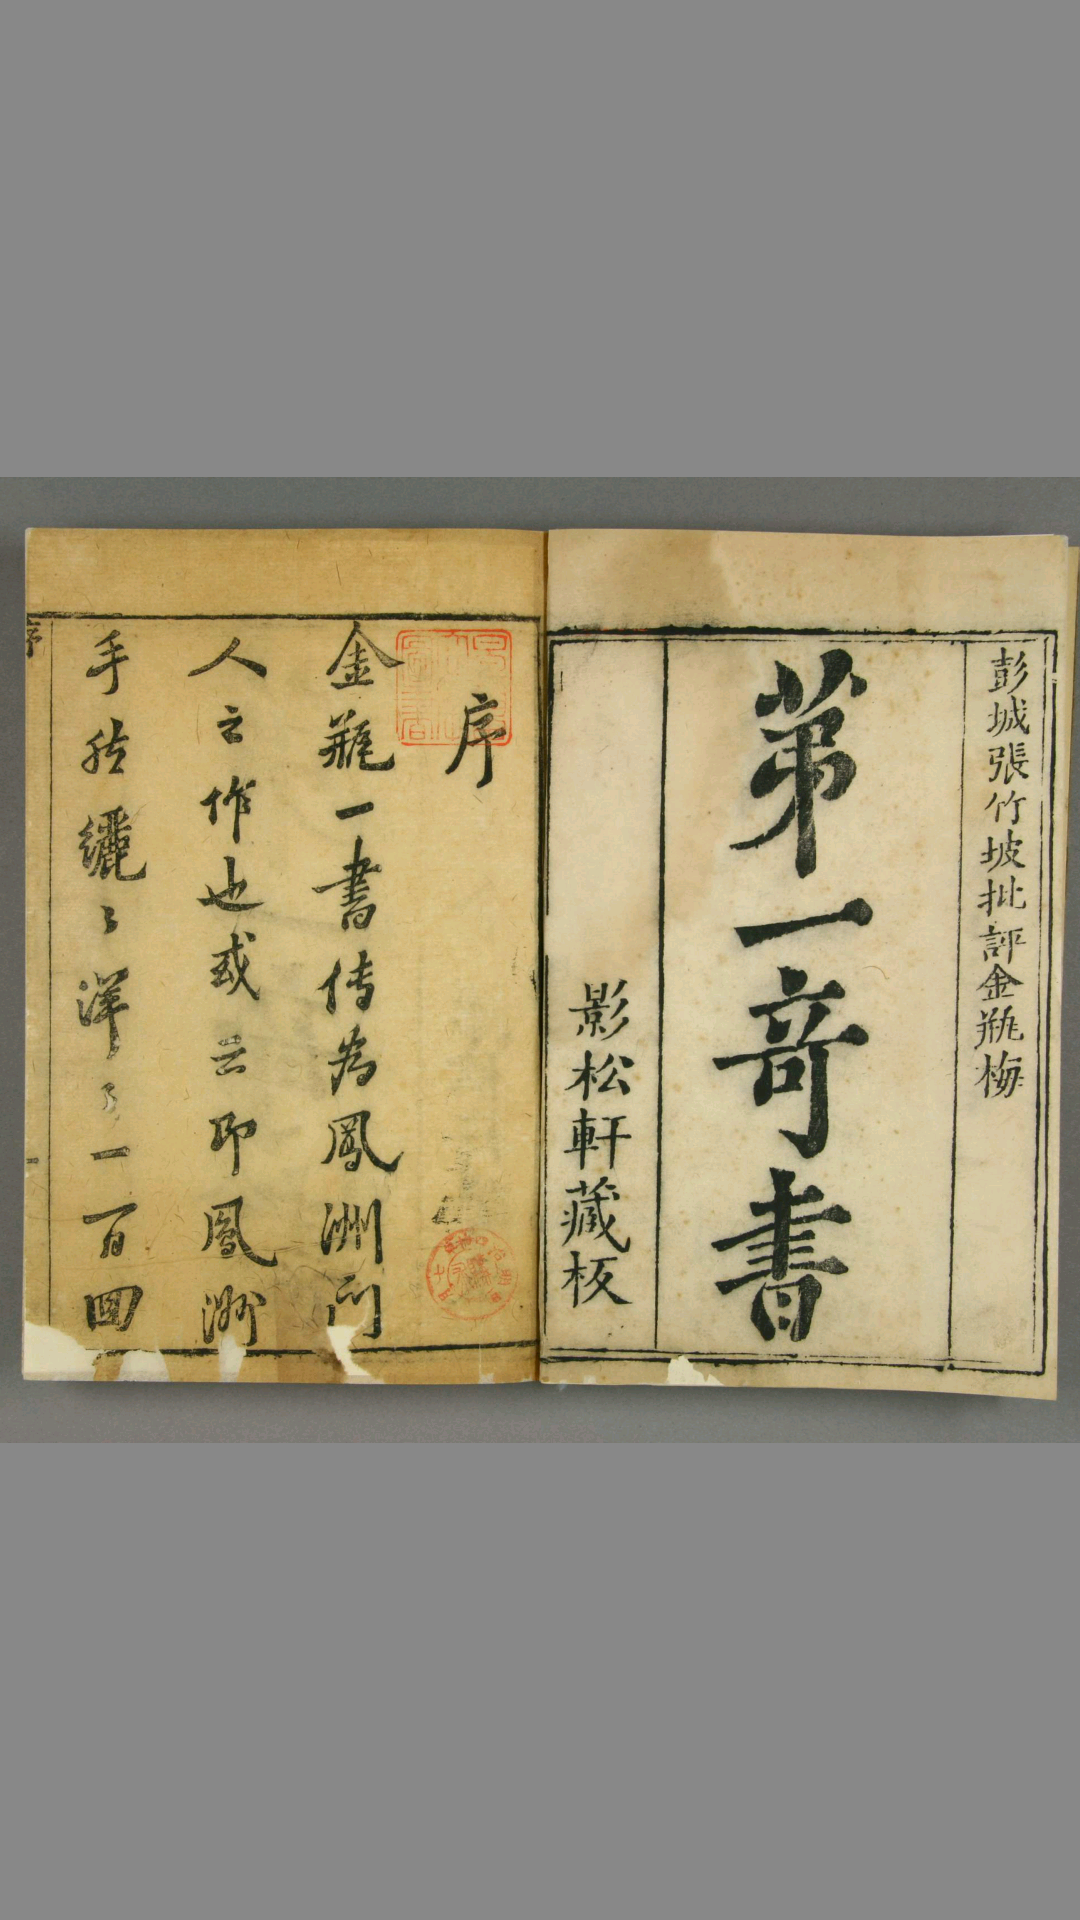 彭城張竹坡批評金瓶梅
第一奇書
影松軒藏板
序
金瓶一書傳為鳳洲門
人之作也或云即鳳洲
手然纚〻洋〻一百回
序
一